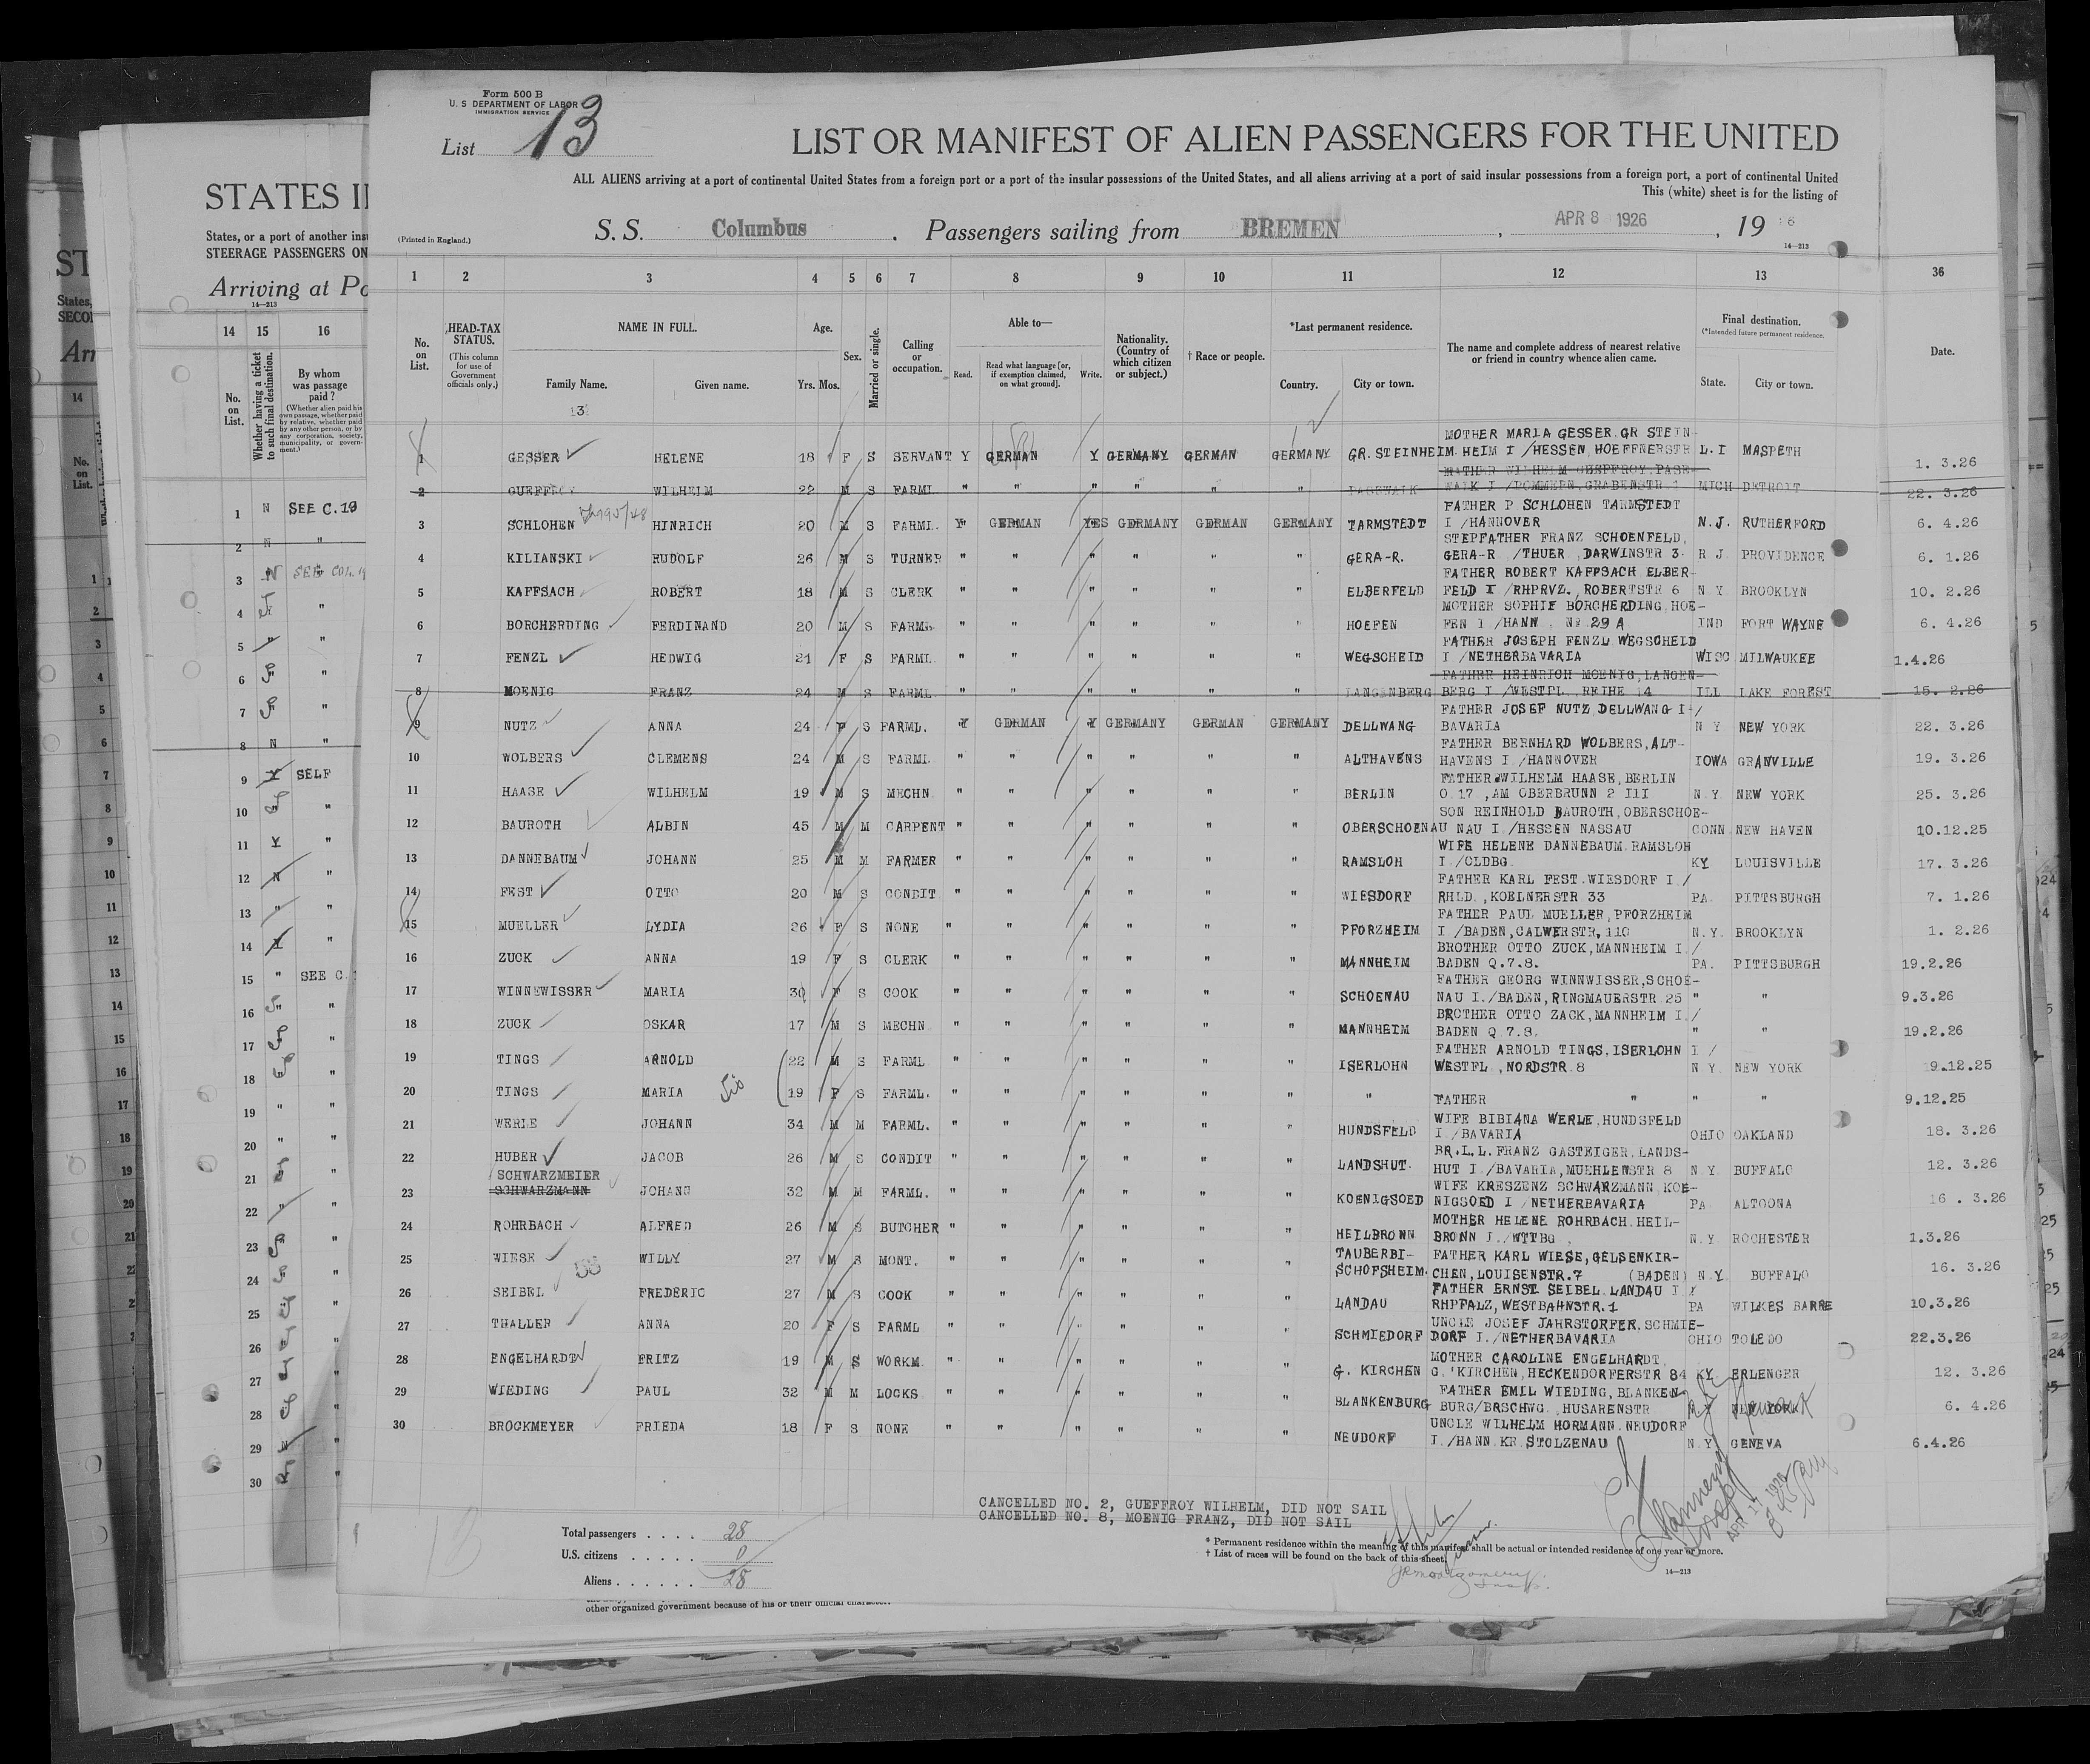 Form 500 B
U. S DEPARTMENT OF LABOR
IMMIGRATION SERVICE
List 13
LIST OR MANIFEST OF ALIEN PASSENGERS FOR THE UNITED
ALL ALIENS arriving at a port of continental United States from a foreign port or a port of the insular possessions of the United States, and all aliens arriving at a port of said insular possessions from a foreign port, a port of continental United
This (white) sheet is for the listing of
(Printed in England.)
S. S. Columbus . Passengers sailing from BREMEN , APR 8 1926 , 19 6
14—213
1 2 3 4 5 6 7 8 9 10 11 12 13 36
No. on List.
HEAD-TAX STATUS.
(This column for use of Government officials only.)
NAME IN FULL.
Family Name. Given name.
Age.
Yrs. Mos.
Sex.
Married or single.
Calling or occupation.
Able to—
Read. Read what language [or, if exemption claimed, on what ground]. Write.
Nationality. (Country of which citizen or subject.)
† Race or people.
*Last permanent residence.
Country. City or town.
The name and complete address of nearest relative or friend in country whence alien came.
Final destination.
(*Intended future permanent residence.
State. City or town.
Date.
MOTHER MARIA GESSER GR STEIN-
1 GESSER HELENE 18 F S SERVANT Y GERMAN Y GERMANY GERMAN GERMANY GR. STEINHEIM HEIM I /HESSEN HOEFFNERSTR L.I MASPETH 1. 3.26
FATHER WILHELM GUEFFROY, PASE-
2 GUEFFROY WILHELM 22 M S FARML " " " " " " PASEWALK WALK I /POMMERN, GRABENSTR 1 MICH DETROIT 22. 3.26
FATHER P SCHLOHEN TARMSTEDT
3 SCHLOHEN HINRICH 20 M S FARML. Y GERMAN YES GERMANY GERMAN GERMANY TARMSTEDT I /HANNOVER N.J. RUTHERFORD 6. 4.26
STEPFATHER FRANZ SCHOENFELD,
4 KILIANSKI RUDOLF 26 M S TURNER " " " " " " GERA-R. GERA-R /THUER DARWINSTR 3. R J. PROVIDENCE 6. 1.26
FATHER ROBERT KAFFSACH ELBER-
5 KAFFSACH ROBERT 18 M S CLERK " " " " " " ELBERFELD FELD I /RHPRVZ., ROBERTSTR 6 N Y BROOKLYN 10. 2.26
MOTHER SOPHIE BORCHERDING, HOE-
6 BORCHERDING FERDINAND 20 M S FARML " " " " " " HOEFEN FEN I /HANN No 29 A IND FORT WAYNE 6. 4.26
FATHER JOSEPH FENZL WEGSCHEID
7 FENZL HEDWIG 21 F S FARML " " " " " " WEGSCHEID I /NETHERBAVARIA WISC MILWAUKEE 1.4.26
FATHER HEINRICH MOENIG, LANGEN-
8 MOENIG FRANZ 24 M S FARML " " " " " " LANGENBERG BERG I /WESTPL. REIHE 14 ILL LAKE FOREST 15. 2.26
FATHER JOSEF NUTZ DELLWANG I /
9 NUTZ ANNA 24 F S FARML. Y GERMAN Y GERMANY GERMAN GERMANY DELLWANG BAVARIA N Y NEW YORK 22. 3.26
FATHER BERNHARD WOLBERS, ALT-
10 WOLBERS CLEMENS 24 M S FARML " " " " " " ALTHAVENS HAVENS I /HANNOVER IOWA GRANVILLE 19. 3.26
FATHER WILHELM HAASE, BERLIN
11 HAASE WILHELM 19 M S MECHN " " " " " " BERLIN O. 17 , AM OBERBRUNN 2 III N.Y. NEW YORK 25. 3.26
SON REINHOLD BAUROTH, OBERSCHOE-
12 BAUROTH ALBIN 45 M M CARPENT " " " " " " OBERSCHOENAU NAU I /HESSEN NASSAU CONN NEW HAVEN 10.12.25
WIFE HELENE DANNEBAUM RAMSLOH
13 DANNEBAUM JOHANN 25 M M FARMER " " " " " " RAMSLOH I /OLDBG. KY LOUISVILLE 17. 3.26
FATHER KARL FEST WIESDORF I /
14 FEST OTTO 20 M S CONDIT " " " " " " WIESDORF RHLD , KOELNERSTR 33 PA. PITTSBURGH 7. 1.26
FATHER PAUL MUELLER, PFORZHEIM
15 MUELLER LYDIA 26 F S NONE " " " " " " PFORZHEIM I /BADEN, CALWERSTR, 110 N.Y. BROOKLYN 1. 2.26
BROTHER OTTO ZUCK, MANNHEIM I /
16 ZUCK ANNA 19 F S CLERK " " " " " " MANNHEIM BADEN Q.7.8. PA. PITTSBURGH 19.2.26
FATHER GEORG WINNWISSER, SCHOE-
17 WINNEWISSER MARIA 30 F S COOK " " " " " " SCHOENAU NAU I./BADEN, RINGMAUERSTR 25 " " 9.3.26
BROTHER OTTO ZACK, MANNHEIM I./
18 ZUCK OSKAR 17 M S MECHN " " " " " " MANNHEIM BADEN Q 7.8. " " 19.2.26
FATHER ARNOLD TINGS, ISERLOHN I /
19 TINGS ARNOLD 22 M S FARML " " " " " " ISERLOHN WESTFL , NORDSTR 8 N Y. NEW YORK 9.12.25
20 TINGS MARIA Sis 19 F S FARML. " " " " " " " FATHER " " " 9.12.25
WIFE BIBIANA WERLE, HUNDSFELD
21 WERLE JOHANN 34 M M FARML. " " " " " " HUNDSFELD I /BAVARIA OHIO OAKLAND 18. 3.26
BR.I.L. FRANZ GASTEIGER, LANDS-
22 HUBER JACOB 26 M S CONDIT " " " " " " LANDSHUT. HUT I /BAVARIA, MUEHLENSTR 8 N.Y. BUFFALO 12. 3.26
SCHWARZMEIER WIFE KRESZENZ SCHWARZMANN KOE-
23 SCHWARZMANN JOHANN 32 M M FARML. " " " " " " KOENIGSOED NIGSOED I /NETHERBAVARIA PA ALTOONA 16 . 3.26
MOTHER HELENE ROHRBACH HEIL-
24 ROHRBACH ALFRED 26 M S BUTCHER " " " " " " HEILBRONN BRONN I./WTTBG N.Y ROCHESTER 1.3.26
TAUBERBI- FATHER KARL WIESE, GELSENKIR-
25 WIESE WILLY 27 M S MONT. " " " " " " SCHOFSHEIM. CHEN, LOUISENSTR.7 (BADEN) N Y BUFFALO 16. 3.26
FATHER ERNST SEIBEL LANDAU I /
26 SEIBEL FREDERIC 27 M S COOK " " " " " " LANDAU RHPFALZ, WESTBAHNSTR.1 PA WILKES BARRE 10.3.26
UNCLE JOSEF JAHRSTORFER, SCHMIE-
27 THALLER ANNA 20 F S FARML " " " " " " SCHMIEDORF DORF I./NETHERBAVARIA OHIO TOLEDO 22.3.26
MOTHER CAROLINE ENGELHARDT,
28 ENGELHARDT FRITZ 19 M S WORKM. " " " " " " G. KIRCHEN G.'KIRCHEN, HECKENDORFERSTR 84 KY. ERLENGER 12. 3.26
FATHER EMIL WIEDING, BLANKEN-
29 WIEDING PAUL 32 M M LOCKS " " " " " " BLANKENBURG BURG/BRSCHWG. HUSARENSTR NEW YORK Newark 6. 4.26
UNCLE WILHELM HORMANN NEUDORF
30 BROCKMEYER FRIEDA 18 F S NONE " " " " " " NEUDORF I./HANN KR STOLZENAU N.Y. GENEVA 6.4.26
CANCELLED NO. 2, GUEFFROY WILHELM, DID NOT SAIL
CANCELLED NO. 8, MOENIG FRANZ, DID NOT SAIL
Total passengers . . . . 28
U.S. citizens . . . . . 0
Aliens . . . . . . 28
* Permanent residence within the meaning of this manifest shall be actual or intended residence of one year or more.
† List of races will be found on the back of this sheet.
14—213
other organized government because of his or their official character.
STATES I
States, or a port of another ins
STEERAGE PASSENGERS ON
Arriving at Po
14—213
14 15 16
No. on List.
Whether having a ticket to such final destination.
By whom was passage paid ?
(Whether alien paid his own passage, whether paid by relative, whether paid by any other person, or by any corporation, society, municipality, or government.)
1 N SEE C.19
2 N "
3 N SEE COL
4 "
5 " "
6 "
7 "
8 N "
9 Y SELF
10 "
11 Y "
12 N "
13 " "
14 Y "
15 " SEE C.
16 " "
17 "
18 "
19 " "
20 " "
21 "
22 " "
23 "
24 "
25 "
26 "
27 "
28 "
29 N "
30 "
ST
States,
SECO
Arr
14
No. on List.